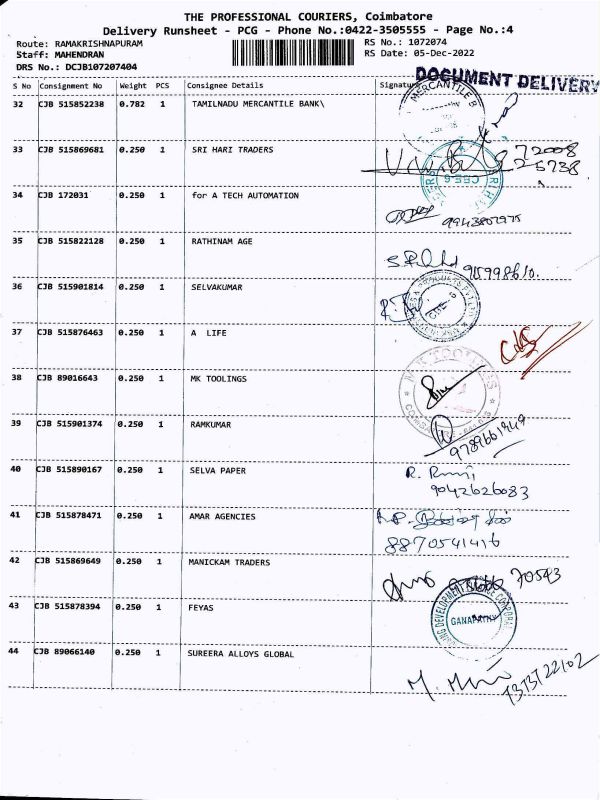 THE PROFESSIONAL COURIERS, Coimbatore
Delivery Runsheet - PCG - Phone No.:0422-3505555 - Page No.:4
Route: RAMAKRISHNAPURAM
RS No.: 1072074
Staff: MAHENDRAN
RS Date: 05-Dec-2022
DRS No.: DCJB107207404
DOCUMENT DELIVERY
S No Consignment No Weight PCS Consignee Details Signature
32 CJB 515852238 0.782 1 TAMILNADU MERCANTILE BANK\
MERCANTILE B
33 CJB 515869681 0.250 1 SRI HARI TRADERS
72008
25738
34 CJB 172031 0.250 1 for A TECH AUTOMATION
35 CJB 515822128 0.250 1 RATHINAM AGE
36 CJB 515901814 0.250 1 SELVAKUMAR
37 CJB 515876463 0.250 1 A LIFE
38 CJB 89016643 0.250 1 MK TOOLINGS
39 CJB 515901374 0.250 1 RAMKUMAR
40 CJB 515890167 0.250 1 SELVA PAPER
9042626083
41 CJB 515878471 0.250 1 AMAR AGENCIES
8870541416
42 CJB 515869649 0.250 1 MANICKAM TRADERS
70543
43 CJB 515878394 0.250 1 FEYAS
GANAPATHY
44 CJB 89066140 0.250 1 SUREERA ALLOYS GLOBAL